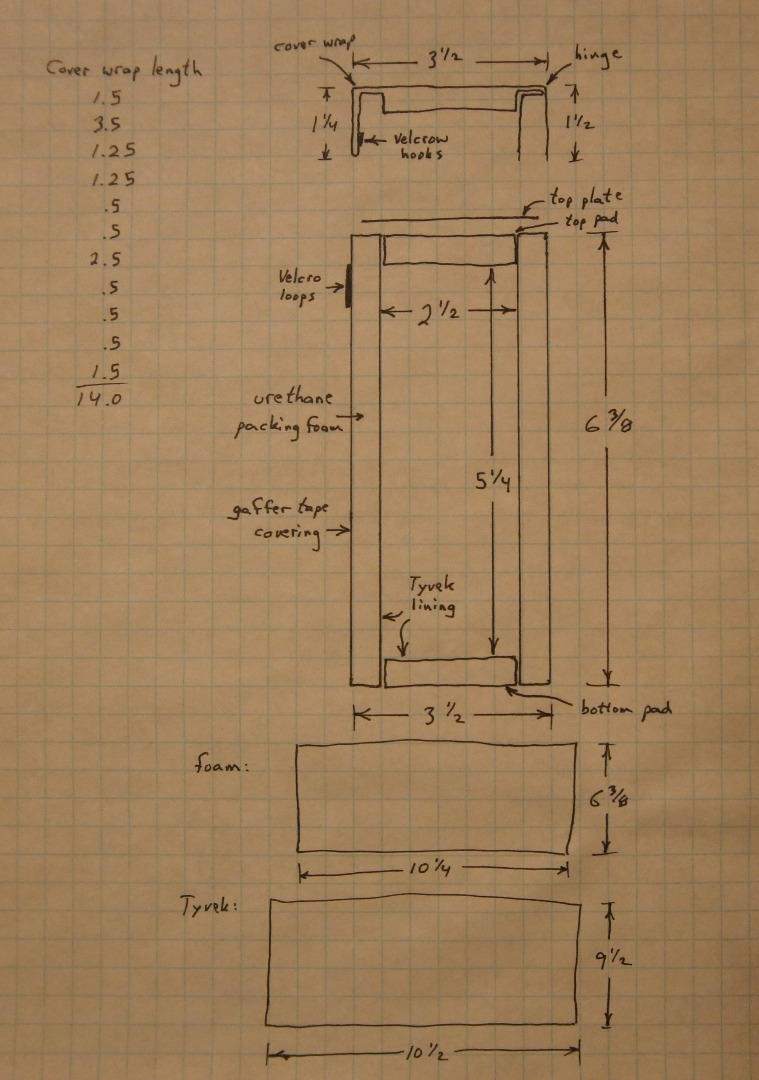 Cover wrap length
1.5
3.5
1.25
1.25
.5
.5
2.5
.5
.5
.5
1.5
14.0
cover wrap
3 1/2
hinge
1 1/4
Velcrow
hooks
1 1/2
top plate
top pad
Velcro
loops
2 1/2
urethane
packing foam
6 3/8
5 1/4
gaffer tape
covering
Tyvek
lining
3 1/2
bottom pad
foam:
6 3/8
10 1/4
Tyvek:
9 1/2
10 1/2